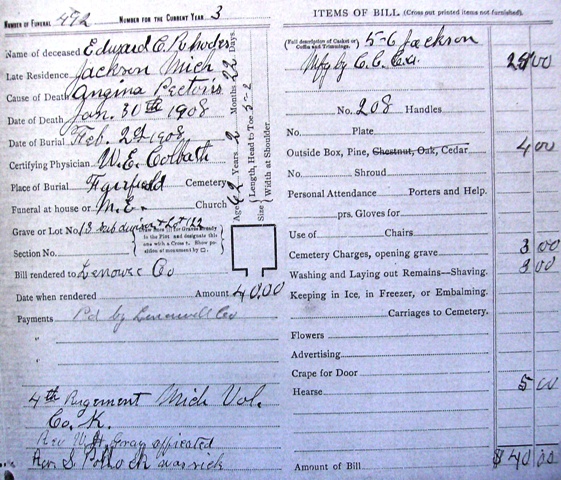 NUMBER OF FUNERAL 492 NUMBER FOR THE CURRENT YEAR 3
Name of deceased Edward C. Rhodes
Late Residence Jackson Mich
Cause of Death Angina Pectoris
Date of Death Jan. 30th 1908
Date of Burial Feb. 2d 1908
Certifying Physician W. E. Colbath
Place of Burial Fairfield Cemetery
Funeral at house or M.E. Church
Grave or Lot No 13 sub division + Lot 122
Section No.
Bill rendered to Lenawee Co
Date when rendered Amount 40.00
Payments Pd by Co
"
"
4th Rigement Mich Vol.
Co. K.
Rev W. H. Gray officated
Rev. S. Pollock was sick
Age 62 Years 2 Months 22 Days
Size Length, Head to Toe 5-2
Width at Shoulder
ITEMS OF BILL (Cross out printed items not furnished).
(Full description of Casket or Coffin and Trimmings.) 5-6 Jackson
Mfg by C. C. Co. 25 00
No. 208 Handles
No. Plate
Outside Box, Pine, Chestnut, Oak, Cedar 4 00
No. Shroud
Personal Attendance Porters and Help.
prs. Gloves for
Use of Chairs
Cemetery Charges, opening grave 3 00
Washing and Laying out Remains—Shaving. 3 00
Keeping in Ice, in Freezer, or Embalming.
Carriages to Cemetery.
Flowers
Advertising
Crape for Door
Hearse 5 00
Amount of Bill $ 40 00